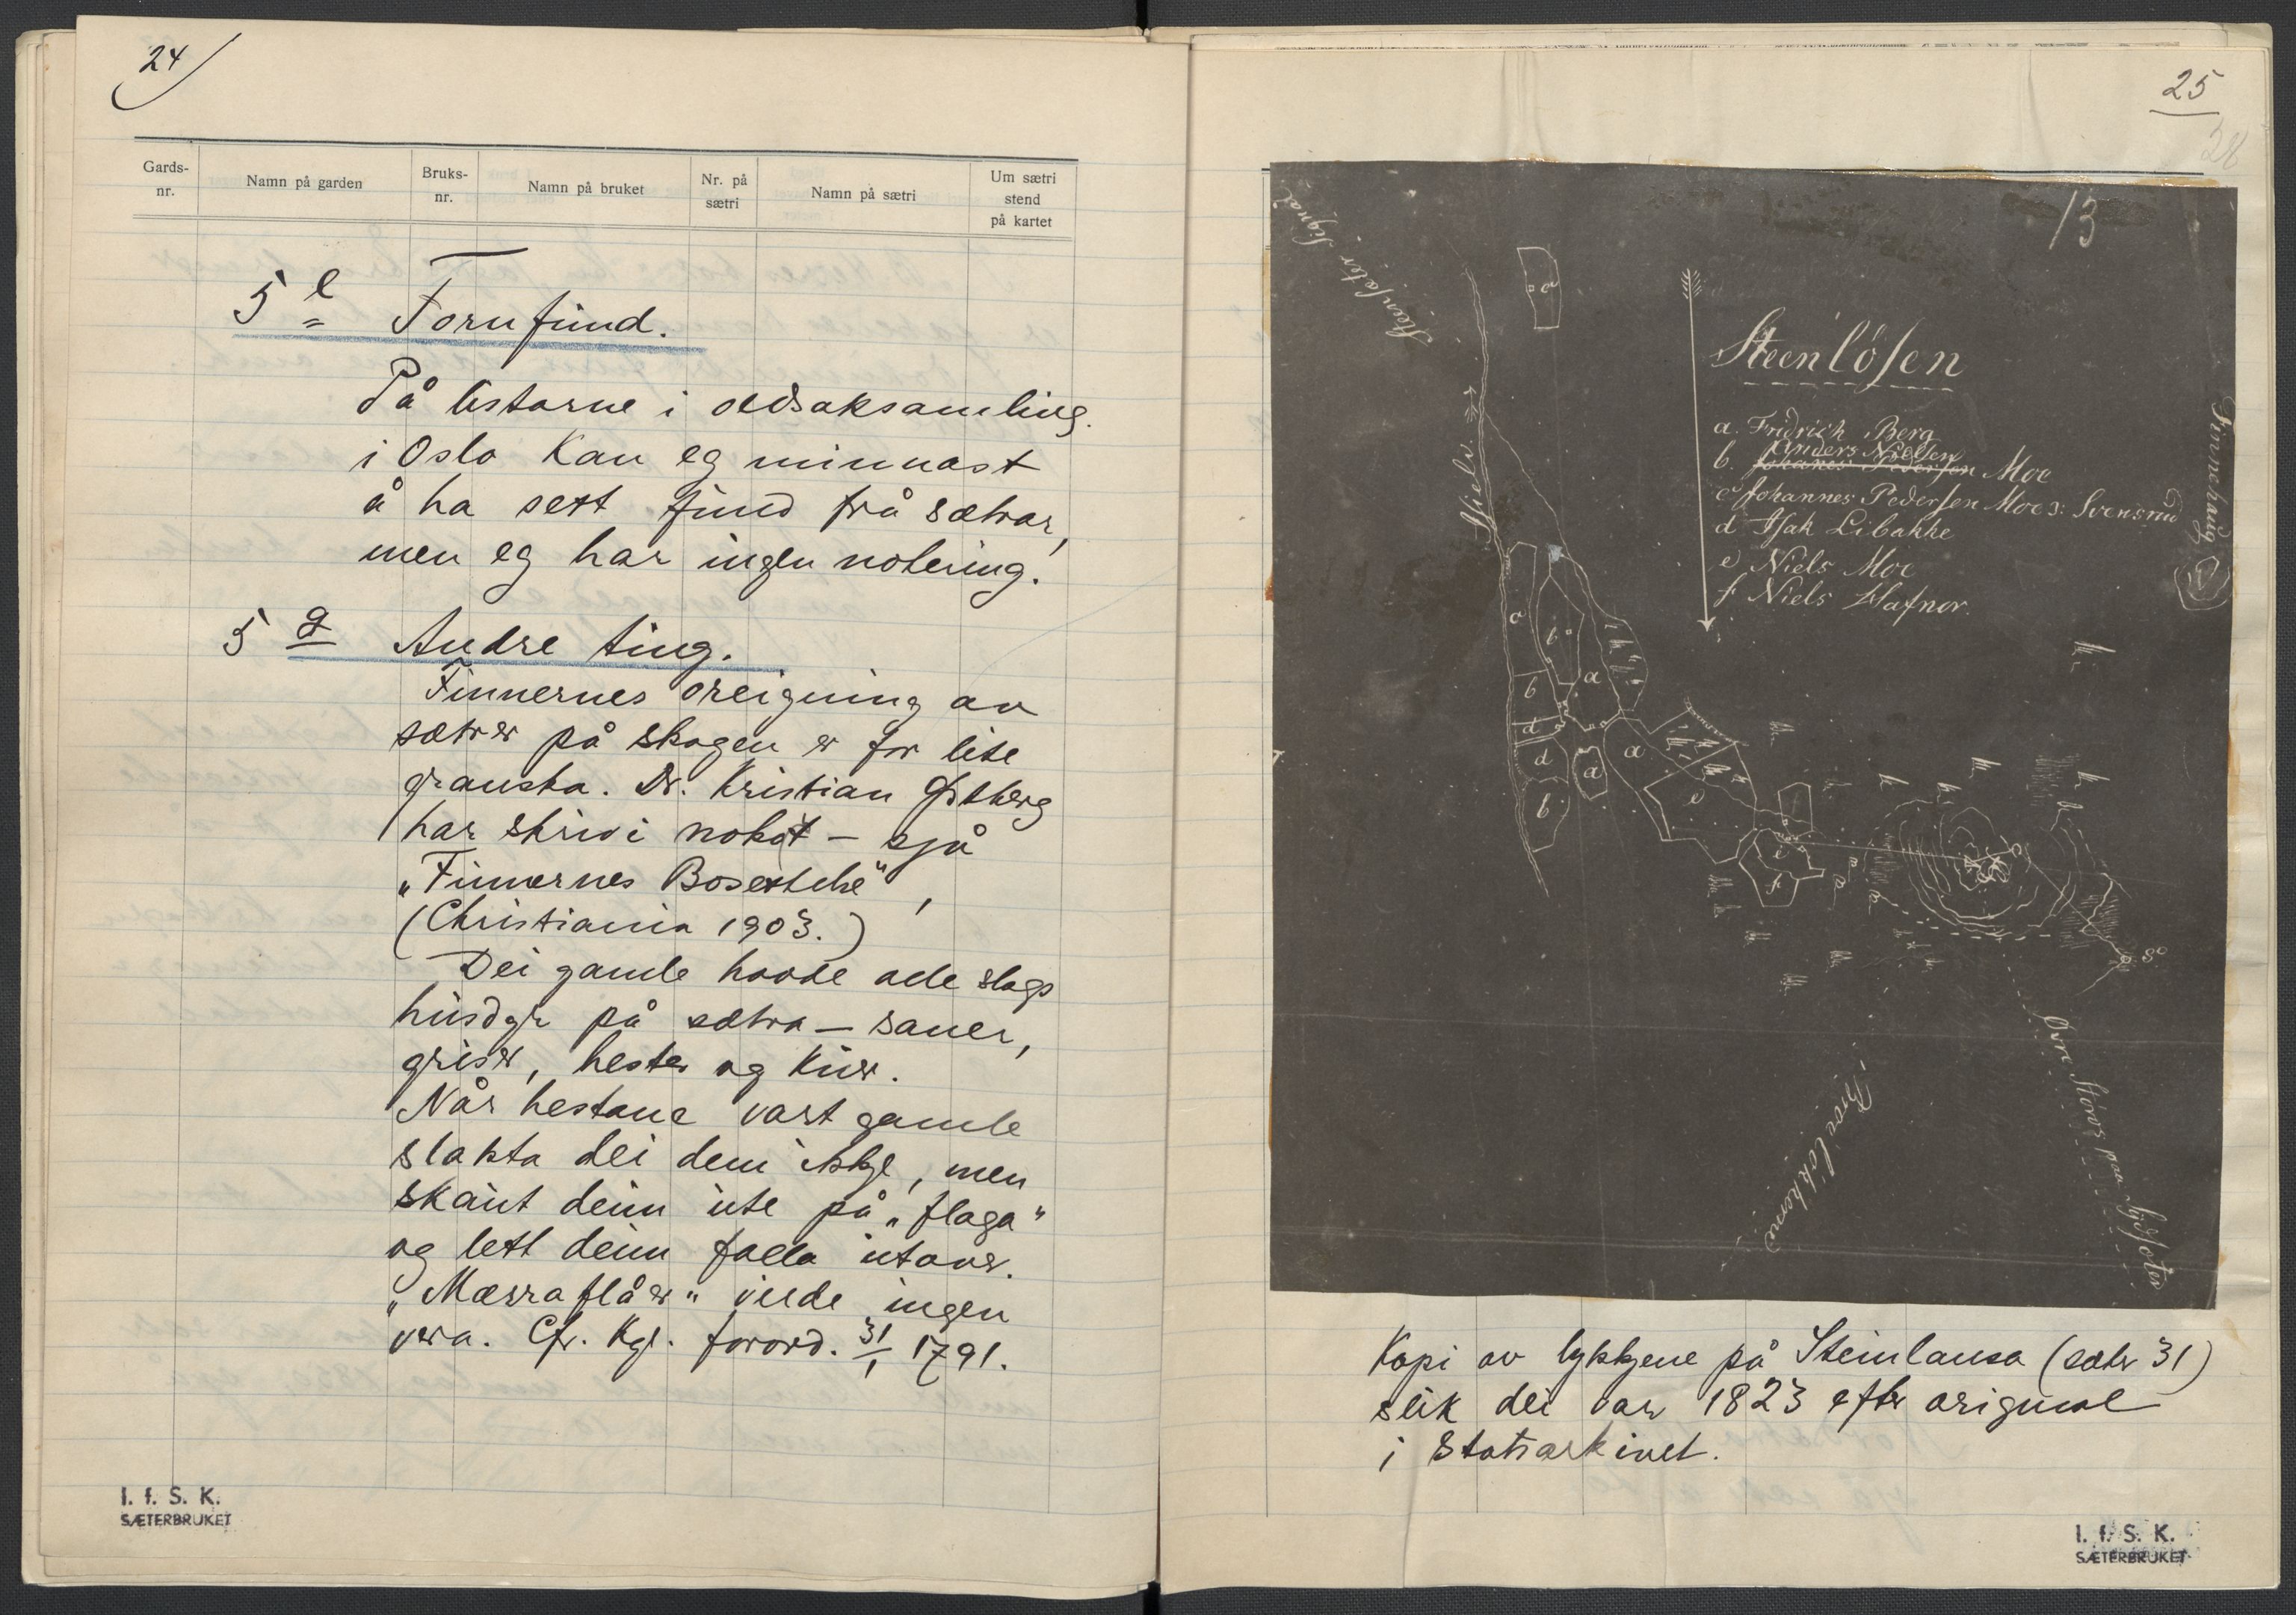 24
Gards-
nr.
Namn på garden
Bruks-
nr.
Namn på bruket
Nr. på
sætri
Namn på sætri
Um sætri
stend
på kartet
5 e Fornfund.
På listorne i oldsaksamling.
i Oslo kan eg minnast
å ha sett fund frå sætrar,
men eg har ingen notering.
5 g Andre ting.
Finnernes oreigning av
sætrer på skogen er for lite
granska. Dr. Kristian Østberg
har skrivi nokot – sjå
„Finnernes Bosettelse",
(Christiania 1903.)
Dei gamle hadde alle slags
husdyr på sætra – sauer,
griser, hester og kuer.
Når hestane vart gamle
slakta dei dem ikkje, men
skaut deim ute på „flaga"
og lett deim falla utover.
„Mærraflåer" vilde ingen
vera. Cfr. Kgl. forord. 31/1 1791.
I. f. S. K.
SÆTERBRUKET
25
28
13
Steensæter Signal
Steenlösen
a. Fridrich Berg
Anders Nielsen
b. Johanes Pedersen Moe
c Johannes Pedersen Moe : Svensrud
d Isak Libakke
e Niels Moe
f Niels Hafnor.
Finnehaug
a
c
b
a
b
d
d
a
a
b
e
f
Øvre Storos paa Sydsæter
Kopi av lykkjene på Steinlausa (sæter 31)
slik dei var 1823 efter original
i Statsarkivet.
I. f. S. K.
SÆTERBRUKET